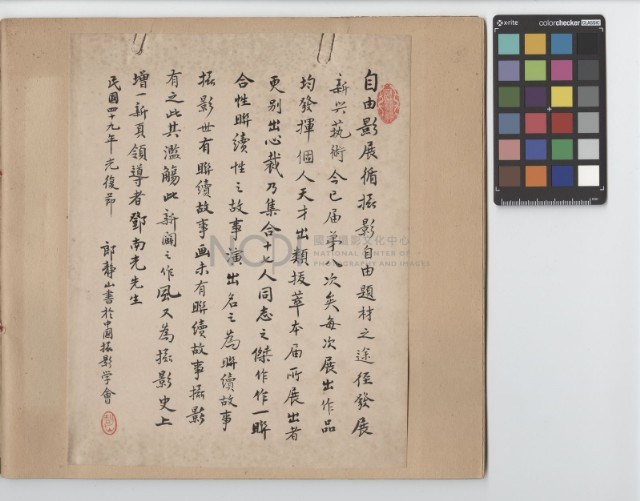 自由影展循攝影自由題材之途徑發展
新兴藝術今已届苐八次矣每次展出作品
均發揮個人天才出類拔萃本届所展出者
更别出心裁乃集合十七人同志之傑作作一聨
合性聨續性之故事演出名之為聨續故事
攝影世有聨續故事画未有聨續故事攝影
有之此其濫觴此新闢之作風又為攝影史上
增一新頁領導者鄧南光先生
民國四十九年光復節
郎静山書於中國攝影学會
NCPI
國家攝影文化中心
NATIONAL CENTER OF
PHOTOGRAPHY AND IMAGES
x-rite
colorchecker CLASSIC